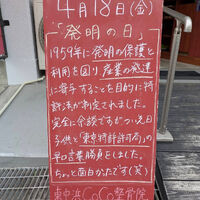 4月18日(金)
「発明の日」
1959年に発明の保護と
利用を図り産業の発達
に寄与することを目的に特
許法が制定されました。
完全に余談ですがつい先日
子供と「東京特許許可局」の
早口言葉勝負をしました。
ちょっと面白かったです(笑)
CoCo整骨院